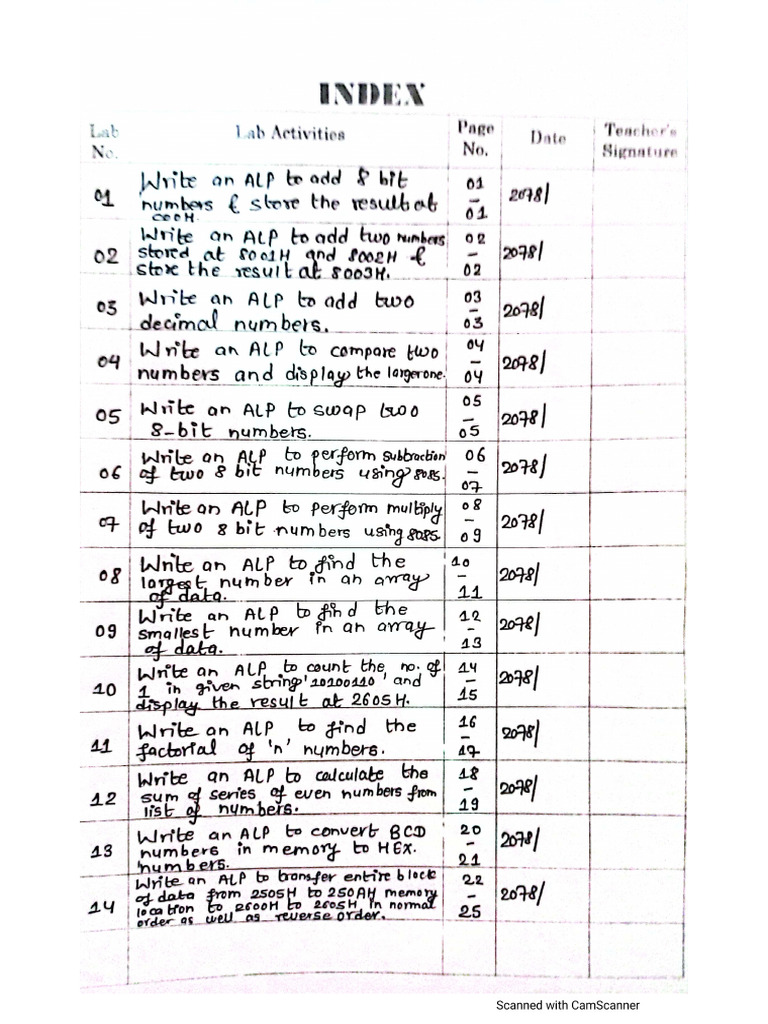 INDEX
Lab No. Lab Activities Page No. Date Teacher's Signature
01 Write an ALP to add 8 bit 01 2078/
numbers & store the result at -
C00H. 01
02 Write an ALP to add two numbers 02 2078/
stored at 8001H and 8002H & -
store the result at 8003H. 02
03 Write an ALP to add two 03 2078/
decimal numbers. - 03
04 Write an ALP to compare two 04 2078/
numbers and display the larger one. - 04
05 Write an ALP to swap two 05 2078/
8-bit numbers. - 05
06 Write an ALP to perform subtraction 06 2078/
of two 8 bit numbers using 8085. - 07
07 Write an ALP to perform multiply 08 2078/
of two 8 bit numbers using 8085. - 09
08 Write an ALP to find the 10 2078/
largest number in an array -
of data. 11
09 Write an ALP to find the 12 2078/
smallest number in an array -
of data. 13
10 Write an ALP to count the no. of 14 2078/
1 in given string '10100110' and -
display the result at 2605H. 15
11 Write an ALP to find the 16 2078/
factorial of 'n' numbers. - 17
12 Write an ALP to calculate the 18 2078/
sum of series of even numbers from -
list of numbers. 19
13 Write an ALP to convert BCD 20 2078/
numbers in memory to HEX. -
numbers. 21
14 Write an ALP to transfer entire block 22 2078/
of data from 2505H to 250AH memory -
location to 2600H to 2605H in normal 25
order as well as reverse order.
Scanned with CamScanner